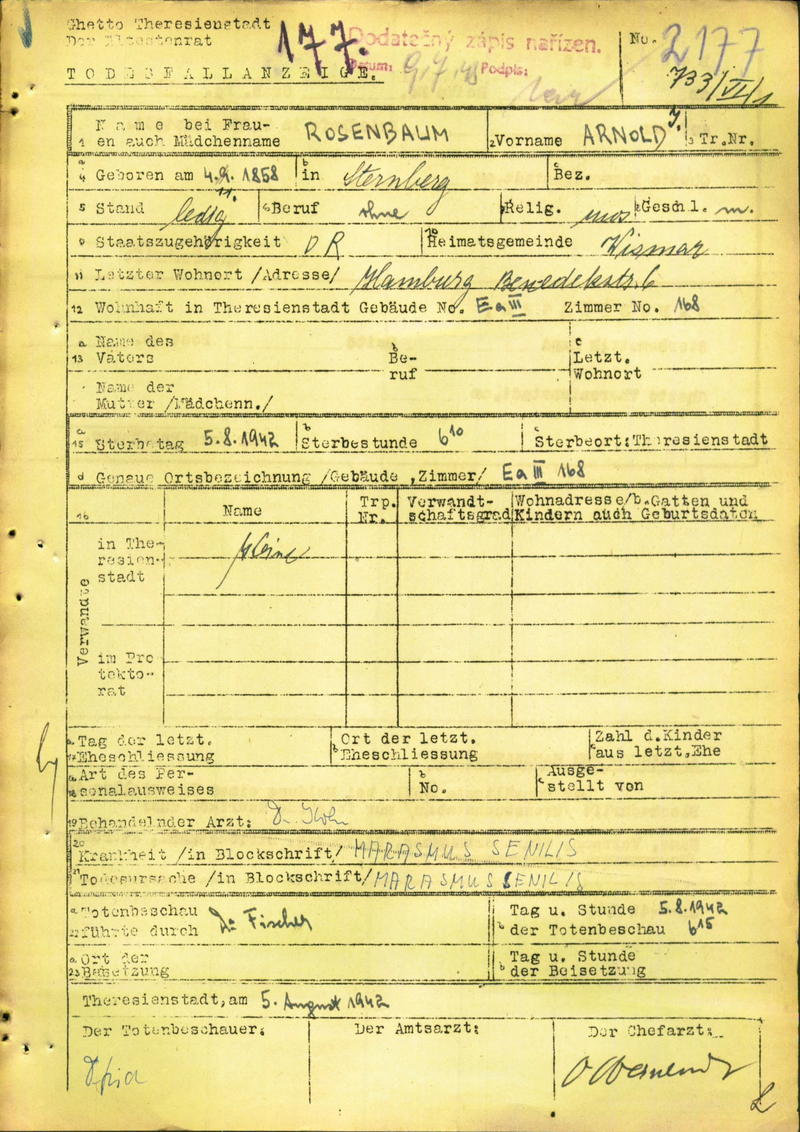 Ghetto Theresienstadt
Der Ältestenrat
177.
Dodatečný zápis nařízen.
Datum: 9.7.48 Podpis:
No. 2177
TODESFALLANZEIGE.
733/VI/1
1 Name bei Frauen auch Mädchenname ROSENBAUM 2 Vorname ARNOLD 3 Tr.Nr.
a 4 Geboren am 4.9.1858 b in Sternberg c Bez.
5 Stand ledig 6 Beruf ohne 7 Relig. mos 8 Geschl. m.
9 Staatszugehörigkeit DR 10 Heimatsgemeinde Wismar
11 Letzter Wohnort /Adresse/ Hamburg Benedekstr. 6
12 Wohnhaft in Theresienstadt Gebäude No. Ea III Zimmer No. 168
a 13 Name des Vaters b Beruf c Letzt. Wohnort
Name der
Mutter /Mädchenn./
a 15 Sterbetag 5.8.1942 b Sterbestunde 6 10 c Sterbeort: Theresienstadt
d Genaue Ortsbezeichnung /Gebäude, Zimmer/ Ea III 168
16 Name Trp. Nr. Verwandtschaftsgrad Wohnadresse/b.Gatten und Kindern auch Geburtsdaten
Verwandte
in Theresienstadt
keine
im Protektorat
a 17 Tag der letzt. Eheschliessung b Ort der letzt. Eheschliessung c Zahl d.Kinder aus letzt.Ehe
a 18 Art des Personalausweises b No. c Ausgestellt von
19 Behandelnder Arzt: Dr.
20 Krankheit /in Blockschrift/ MARASMUS SENILIS
21 Todesursache /in Blockschrift/ MARASMUS SENILIS
a 22 Totenbeschau führte durch Dr. Fischer b Tag u. Stunde der Totenbeschau 5.8.1942 6 15
a 23 Ort der Beisetzung b Tag u. Stunde der Beisetzung
Theresienstadt, am 5. August 1942
Der Totenbeschauer: Der Amtsarzt: Der Chefarzt: